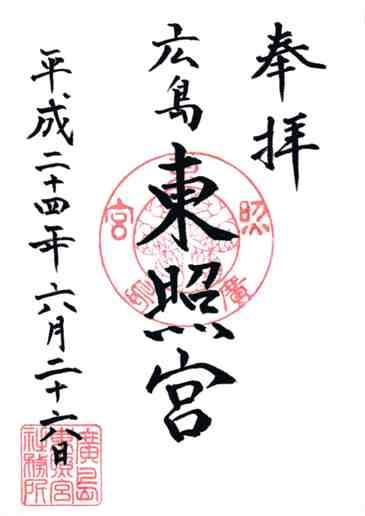 奉拝
広島
東照宮
平成二十四年六月二十六日
廣島
東照宮
社務所